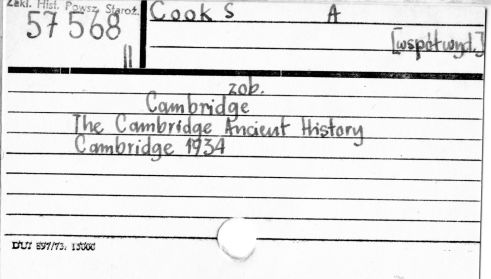 Zakł. Hist. Powsz. Staroż.
57 568
II
Cook S A
[współwyd.]
zob.
Cambridge
The Cambridge Ancient History
Cambridge 1934
DUJ 897/73. 15000